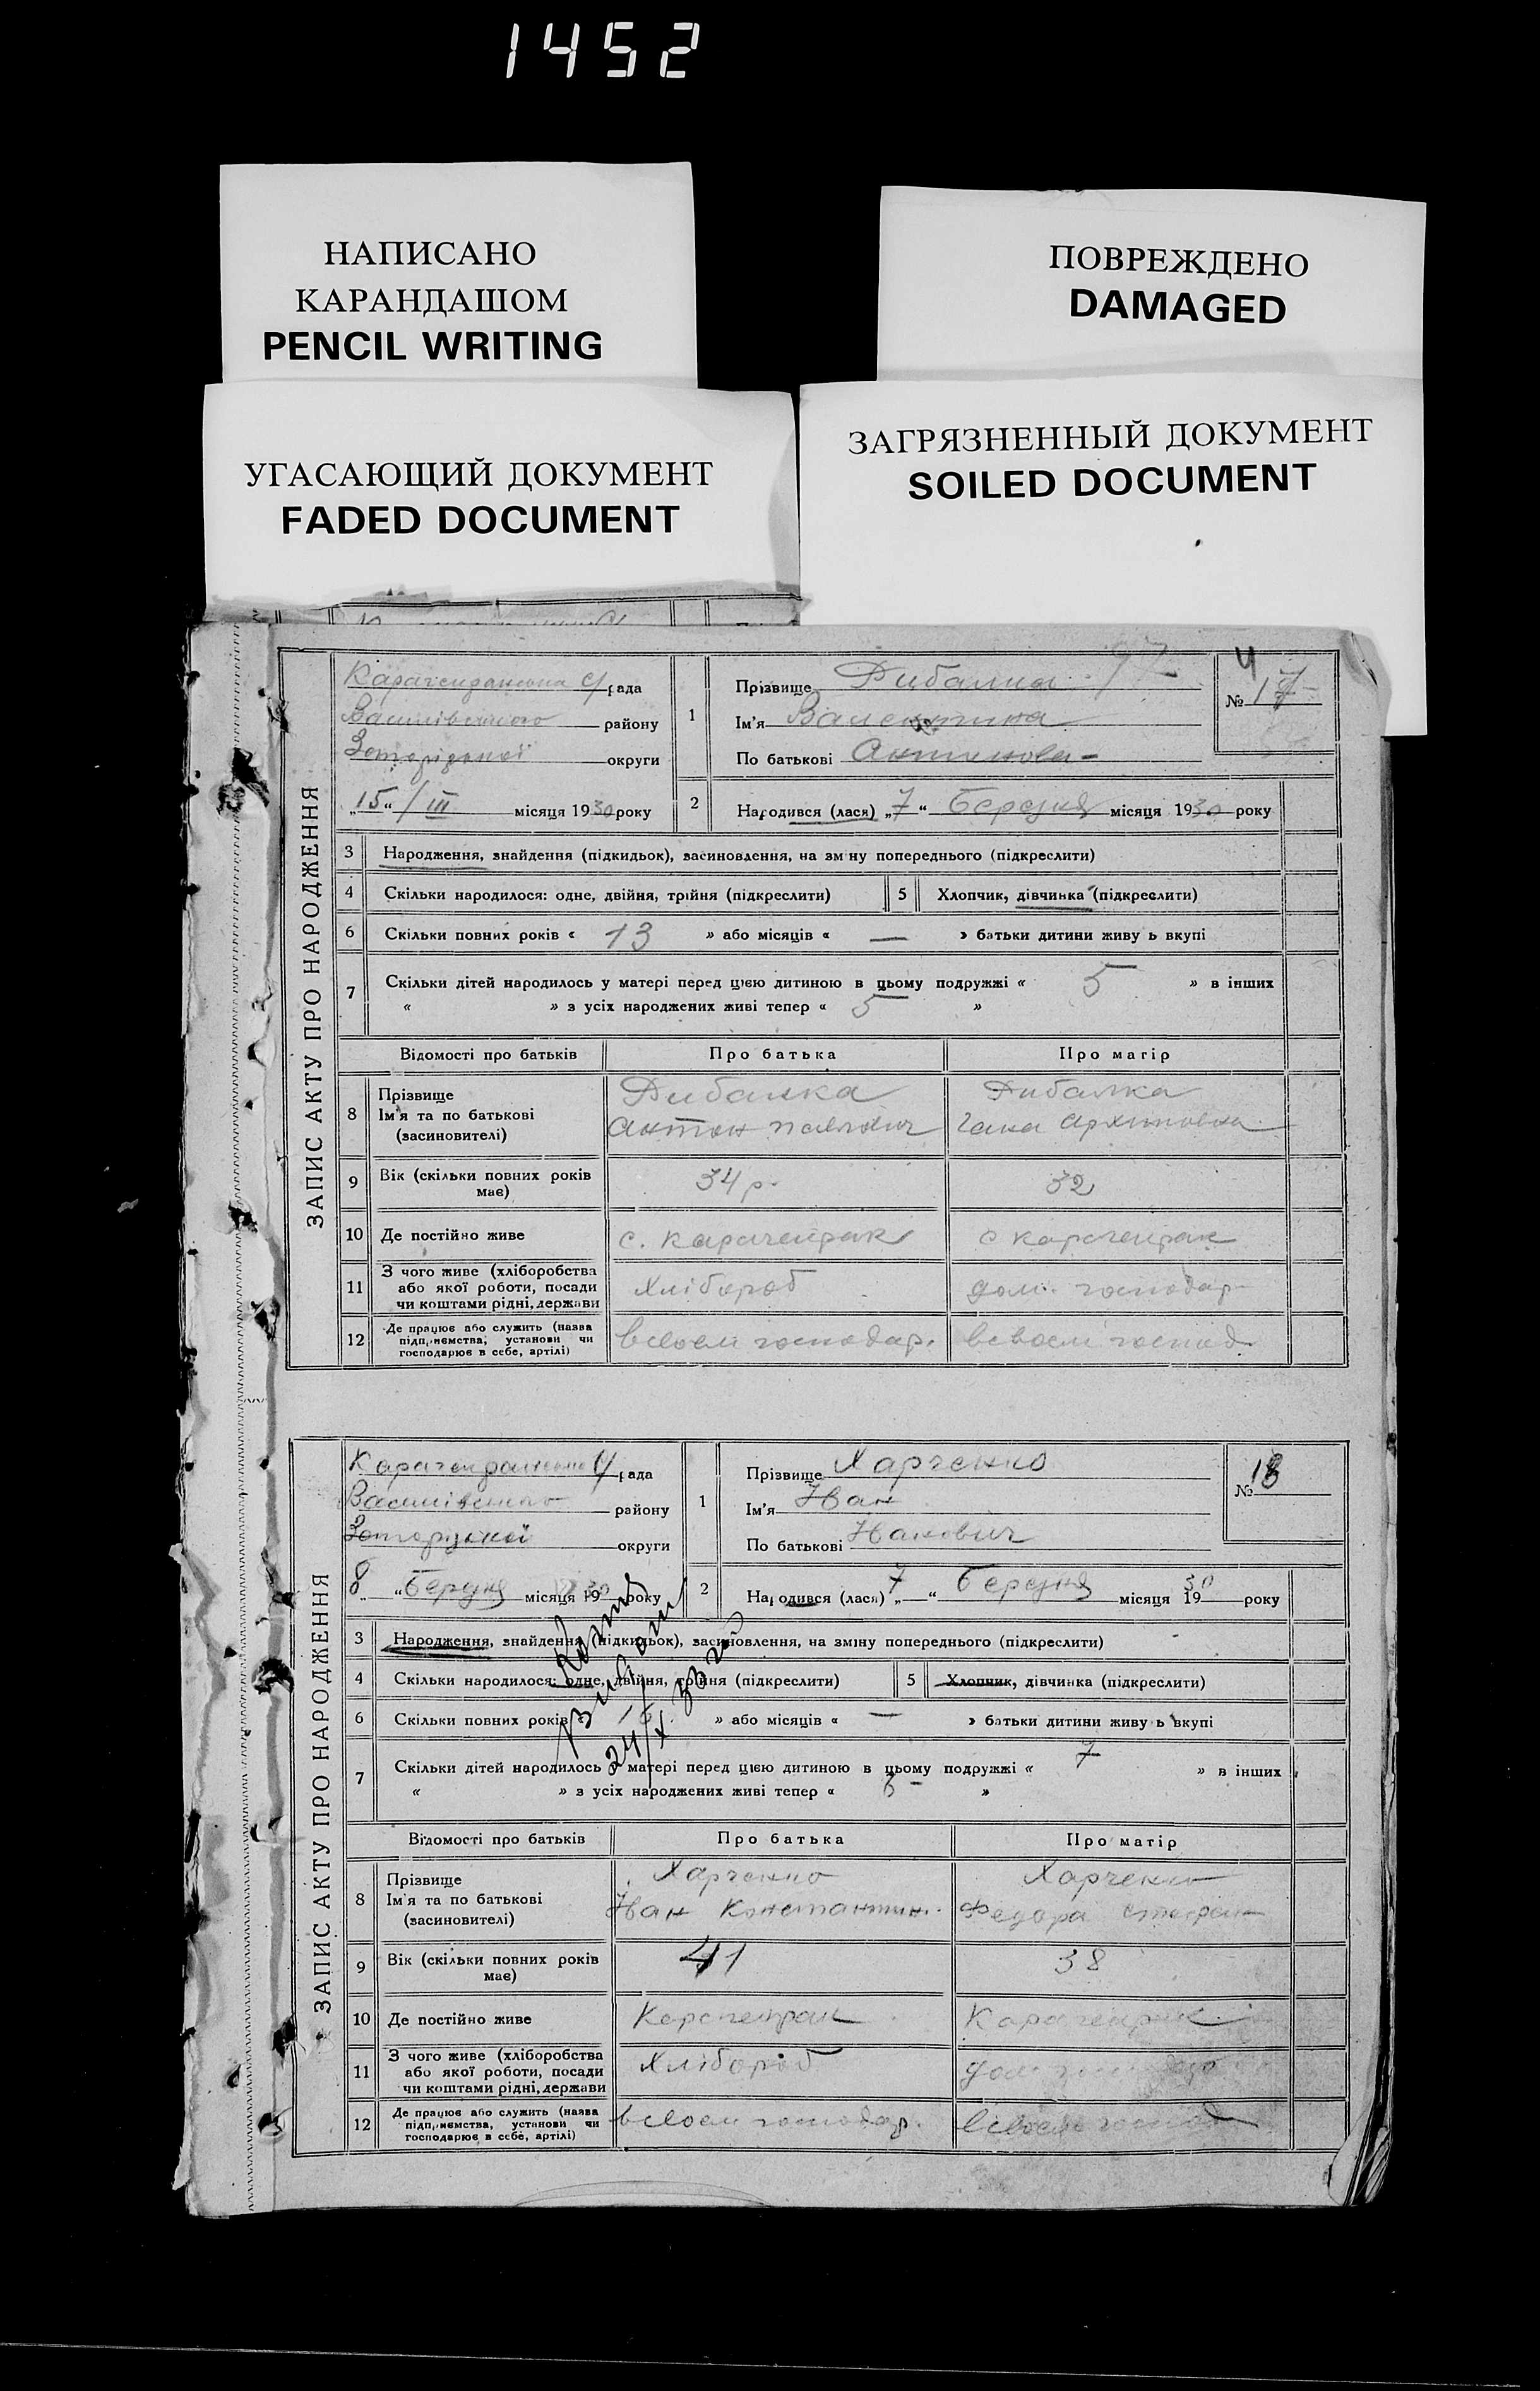 1452
НАПИСАНО
КАРАНДАШОМ
PENCIL WRITING
ПОВРЕЖДЕНО
DAMAGED
УГАСАЮЩИЙ ДОКУМЕНТ
FADED DOCUMENT
ЗАГРЯЗНЕННЫЙ ДОКУМЕНТ
SOILED DOCUMENT
ЗАПИС АКТУ ПРО НАРОДЖЕННЯ
рада
району
округи
„15“ / III місяця 1930 року
1
Прізвище Рибалка
Ім'я Валентина
По батькові
№ 17
2 Народився (лася) „7“ Березня місяця 1930 року
3 Народження, знайдення (підкидьок), засиновлення, на зміну попереднього (підкреслити)
4 Скільки народилося: одне, двійня, трійня (підкреслити)
5 Хлопчик, дівчинка (підкреслити)
6 Скільки повних років « 13 » або місяців « — » батьки дитини живуть вкупі
7 Скільки дітей народилось у матері перед цією дитиною в цьому подружжі « 5 » в інших
« » з усіх народжених живі тепер « 5 »
Відомості про батьків Про батька Про матір
8 Прізвище Рибалка Рибалка
Ім'я та по батькові Антон
(засиновителі)
9 Вік (скільки повних років має) 34 р. 32
10 Де постійно живе с. Карачекрак с Карачекрак
11 З чого живе (хліборобства або якої роботи, посади чи коштами рідні, держави Хлібороб дом. господар
12 Де працює або служить (назва підприємства, установи чи господарює в себе, артілі) в своем господар. в своем господ
ЗАПИС АКТУ ПРО НАРОДЖЕННЯ
рада
району
округи
„8“ Березня місяця 1930 року
1
Прізвище Харченко
Ім'я Іван
По батькові Іванович
№ 18
2 Народився (лася) „7“ Березня місяця 1930 року
3 Народження, знайдення (підкидьок), засиновлення, на зміну попереднього (підкреслити)
4 Скільки народилося: одне, двійня, трійня (підкреслити)
5 Хлопчик, дівчинка (підкреслити)
6 Скільки повних років « » або місяців « — » батьки дитини живуть вкупі
7 Скільки дітей народилось у матері перед цією дитиною в цьому подружжі « 7 » в інших
« » з усіх народжених живі тепер « »
24/X
Відомості про батьків Про батька Про матір
8 Прізвище Харченко Харченко
Ім'я та по батькові Іван Константин. Федора
(засиновителі)
9 Вік (скільки повних років має) 41 38
10 Де постійно живе Карачекрак Карачекрак
11 З чого живе (хліборобства або якої роботи, посади чи коштами рідні, держави Хлібороб дом
12 Де працює або служить (назва підприємства, установи чи господарює в себе, артілі) в своем господар. в своем